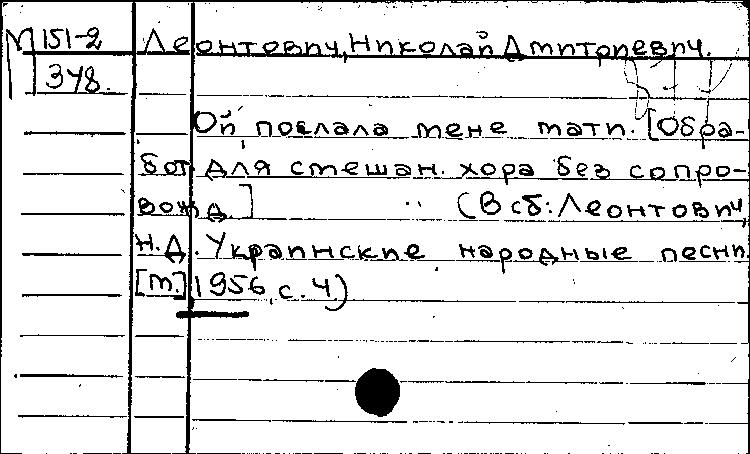 М151-2 Леонтович, Николай Дмитриевич.
348.
Ой, послала мене мати. [Обра-
бот. для смешан. хора без сопро-
вожд.] (В сб.: Леонтович,
Н.Д. Украинские народные песни.
[М.], 1956, с. 4)